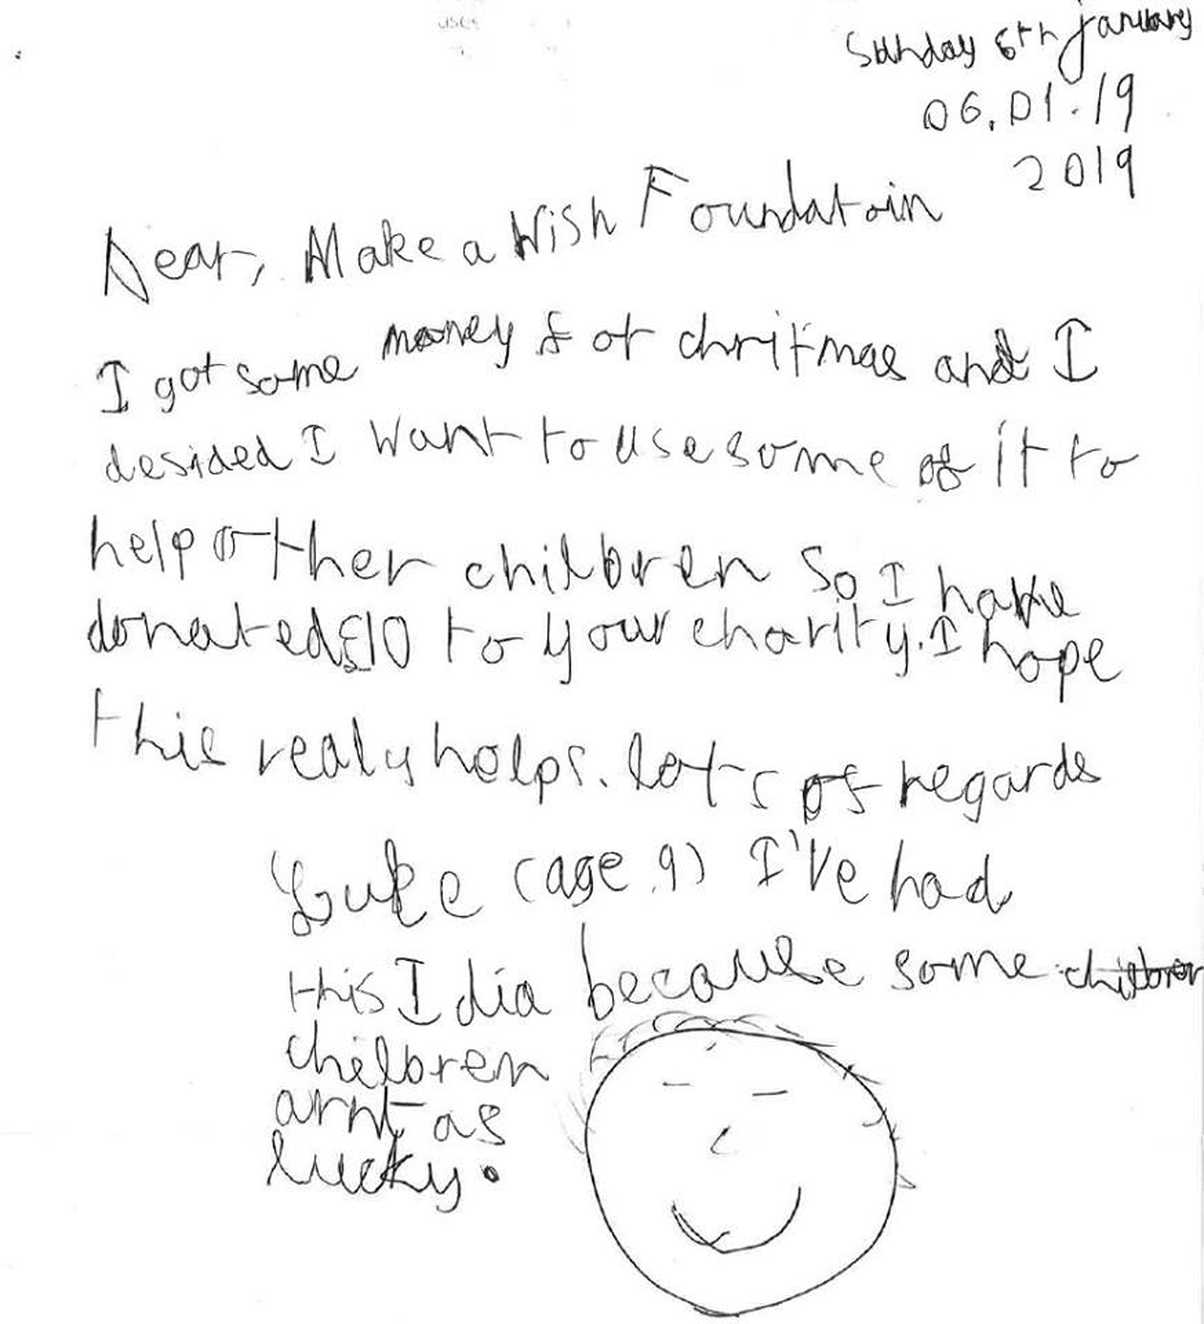 Sunday 6th january
06.01.19
2019
Dear, Make a Wish Foundatoin
I got some money for chritmas and I
desided I want to use some of it to
help other children So I have
donated £10 to your charity. I hope
this realy helps. lots of regards
Luke (age 9) I've had
this Idia because some children
children
arnt as
lucky.